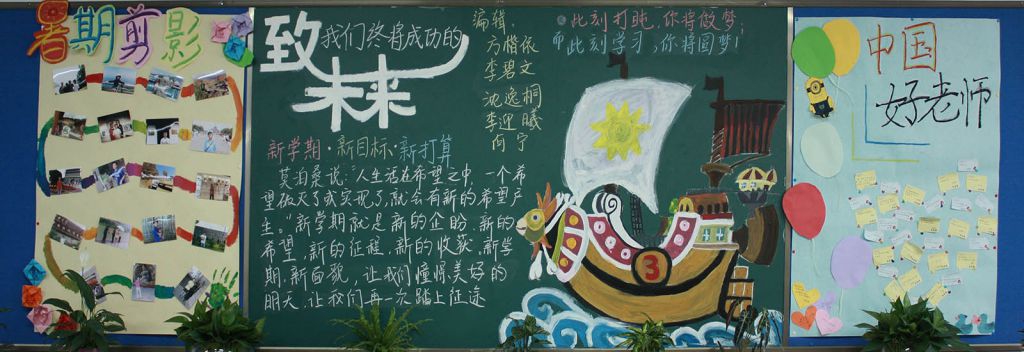 暑期剪影
致我们终将成功的
未来
编辑:
方楷依
李碧文
沈逸桐
李迎曦
向宁
此刻打盹,你将做梦;
此刻学习,你将圆梦!
新学期·新目标·新打算
莫泊桑说:"人生活在希望之中,一个希
望破灭了或实现了,就会有新的希望产
生。"新学期就是新的企盼,新的
希望,新的征程,新的收获,新学
期,新面貌,让我们憧憬美好的
明天,让我们再一次踏上征途
3
中国
好老师